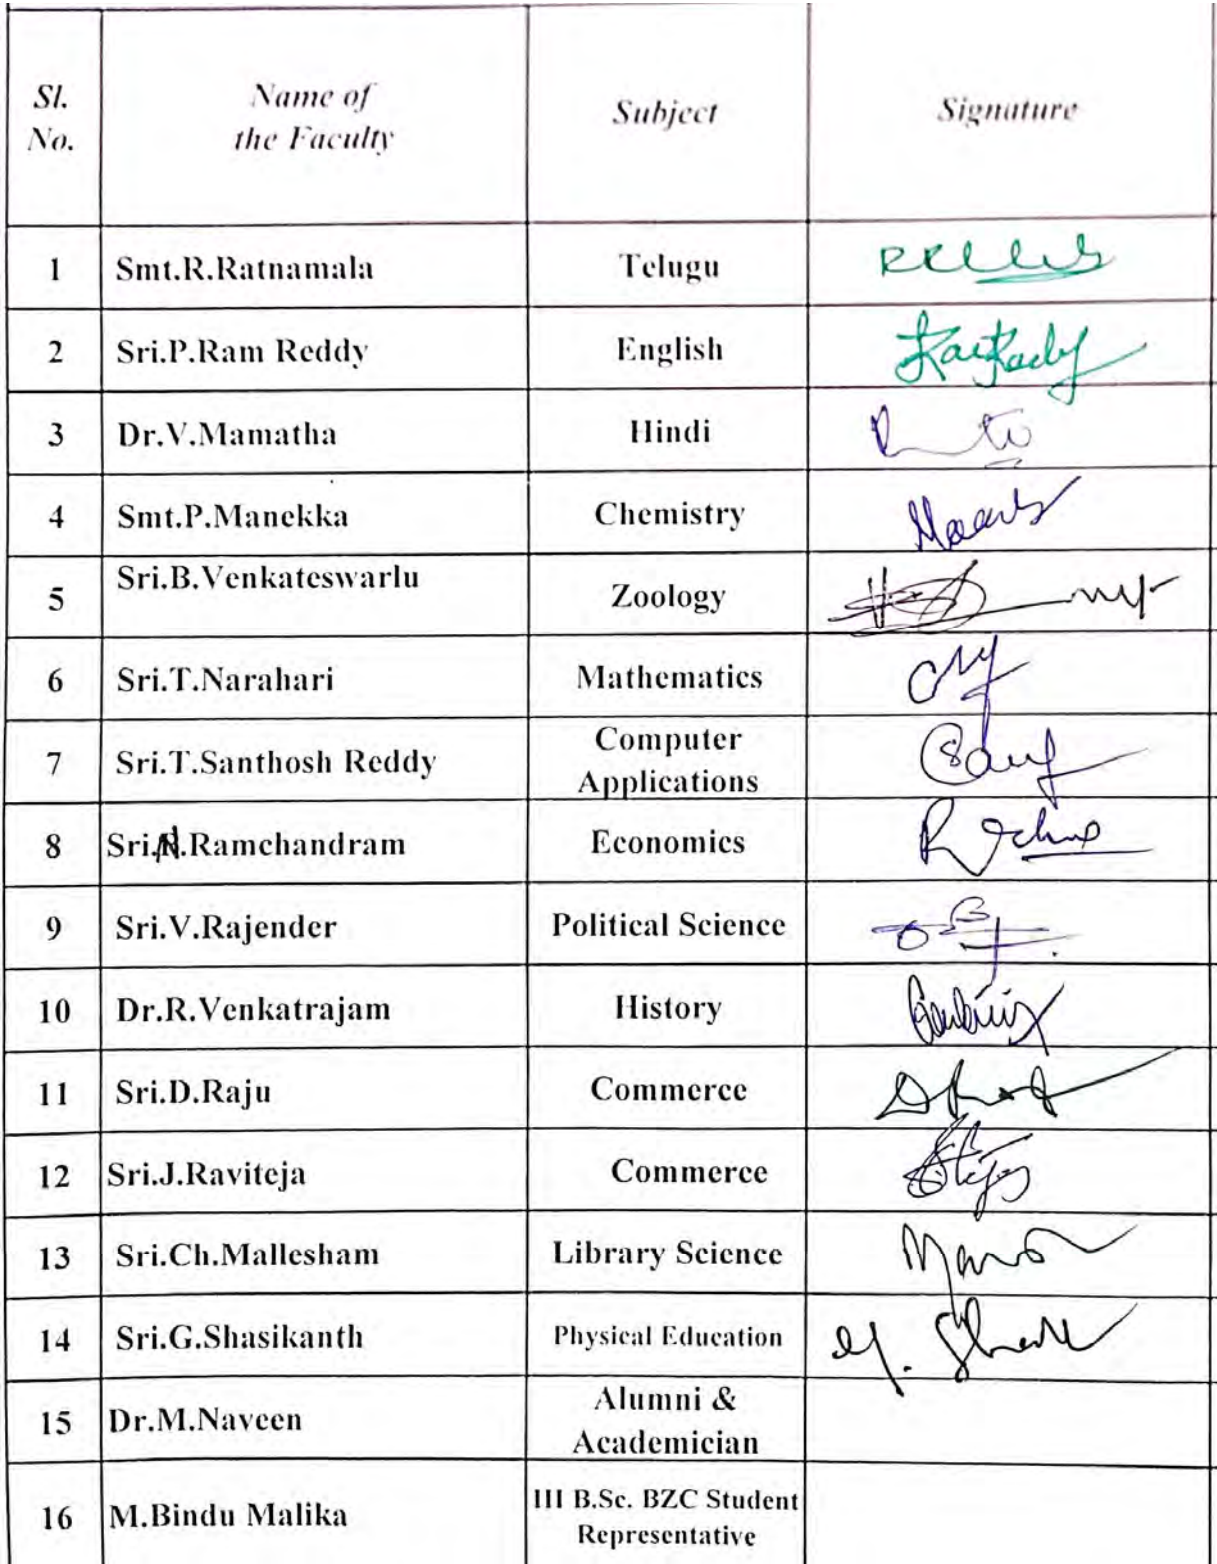 Sl. No.
Name of the Faculty
Subject
Signature
1 Smt.R.Ratnamala Telugu
2 Sri.P.Ram Reddy English
3 Dr.V.Mamatha Hindi
4 Smt.P.Manekka Chemistry
5 Sri.B.Venkateswarlu Zoology
6 Sri.T.Narahari Mathematics
7 Sri.T.Santhosh Reddy Computer
Applications
8 Sri.N.Ramchandram Economics
9 Sri.V.Rajender Political Science
10 Dr.R.Venkatrajam History
11 Sri.D.Raju Commerce
12 Sri.J.Raviteja Commerce
13 Sri.Ch.Mallesham Library Science
14 Sri.G.Shasikanth Physical Education
15 Dr.M.Naveen Alumni &
Academician
16 M.Bindu Malika III B.Sc. BZC Student
Representative